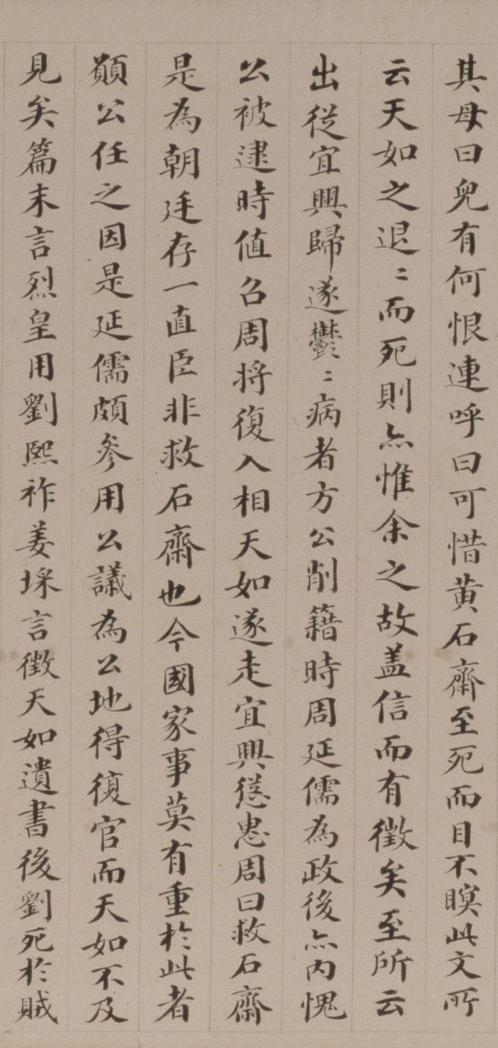 其母曰兒有何恨連呼曰可惜黄石齋至死而目不瞑此文所
云天如之退〻而死則亦惟余之故盖信而有徵矣至所云
出從宜興歸遂鬱〻病者方公削籍時周延儒為政後亦内愧
公被逮時值召周將復入相天如遂走宜興慫恿周曰救石齋
是為朝廷存一直臣非救石齋也今國家事莫有重於此者
顧公任之因是延儒頗參用公議為公地得復官而天如不及
見矣篇末言烈皇用劉熙祚姜埰言徵天如遺書後劉死於賊